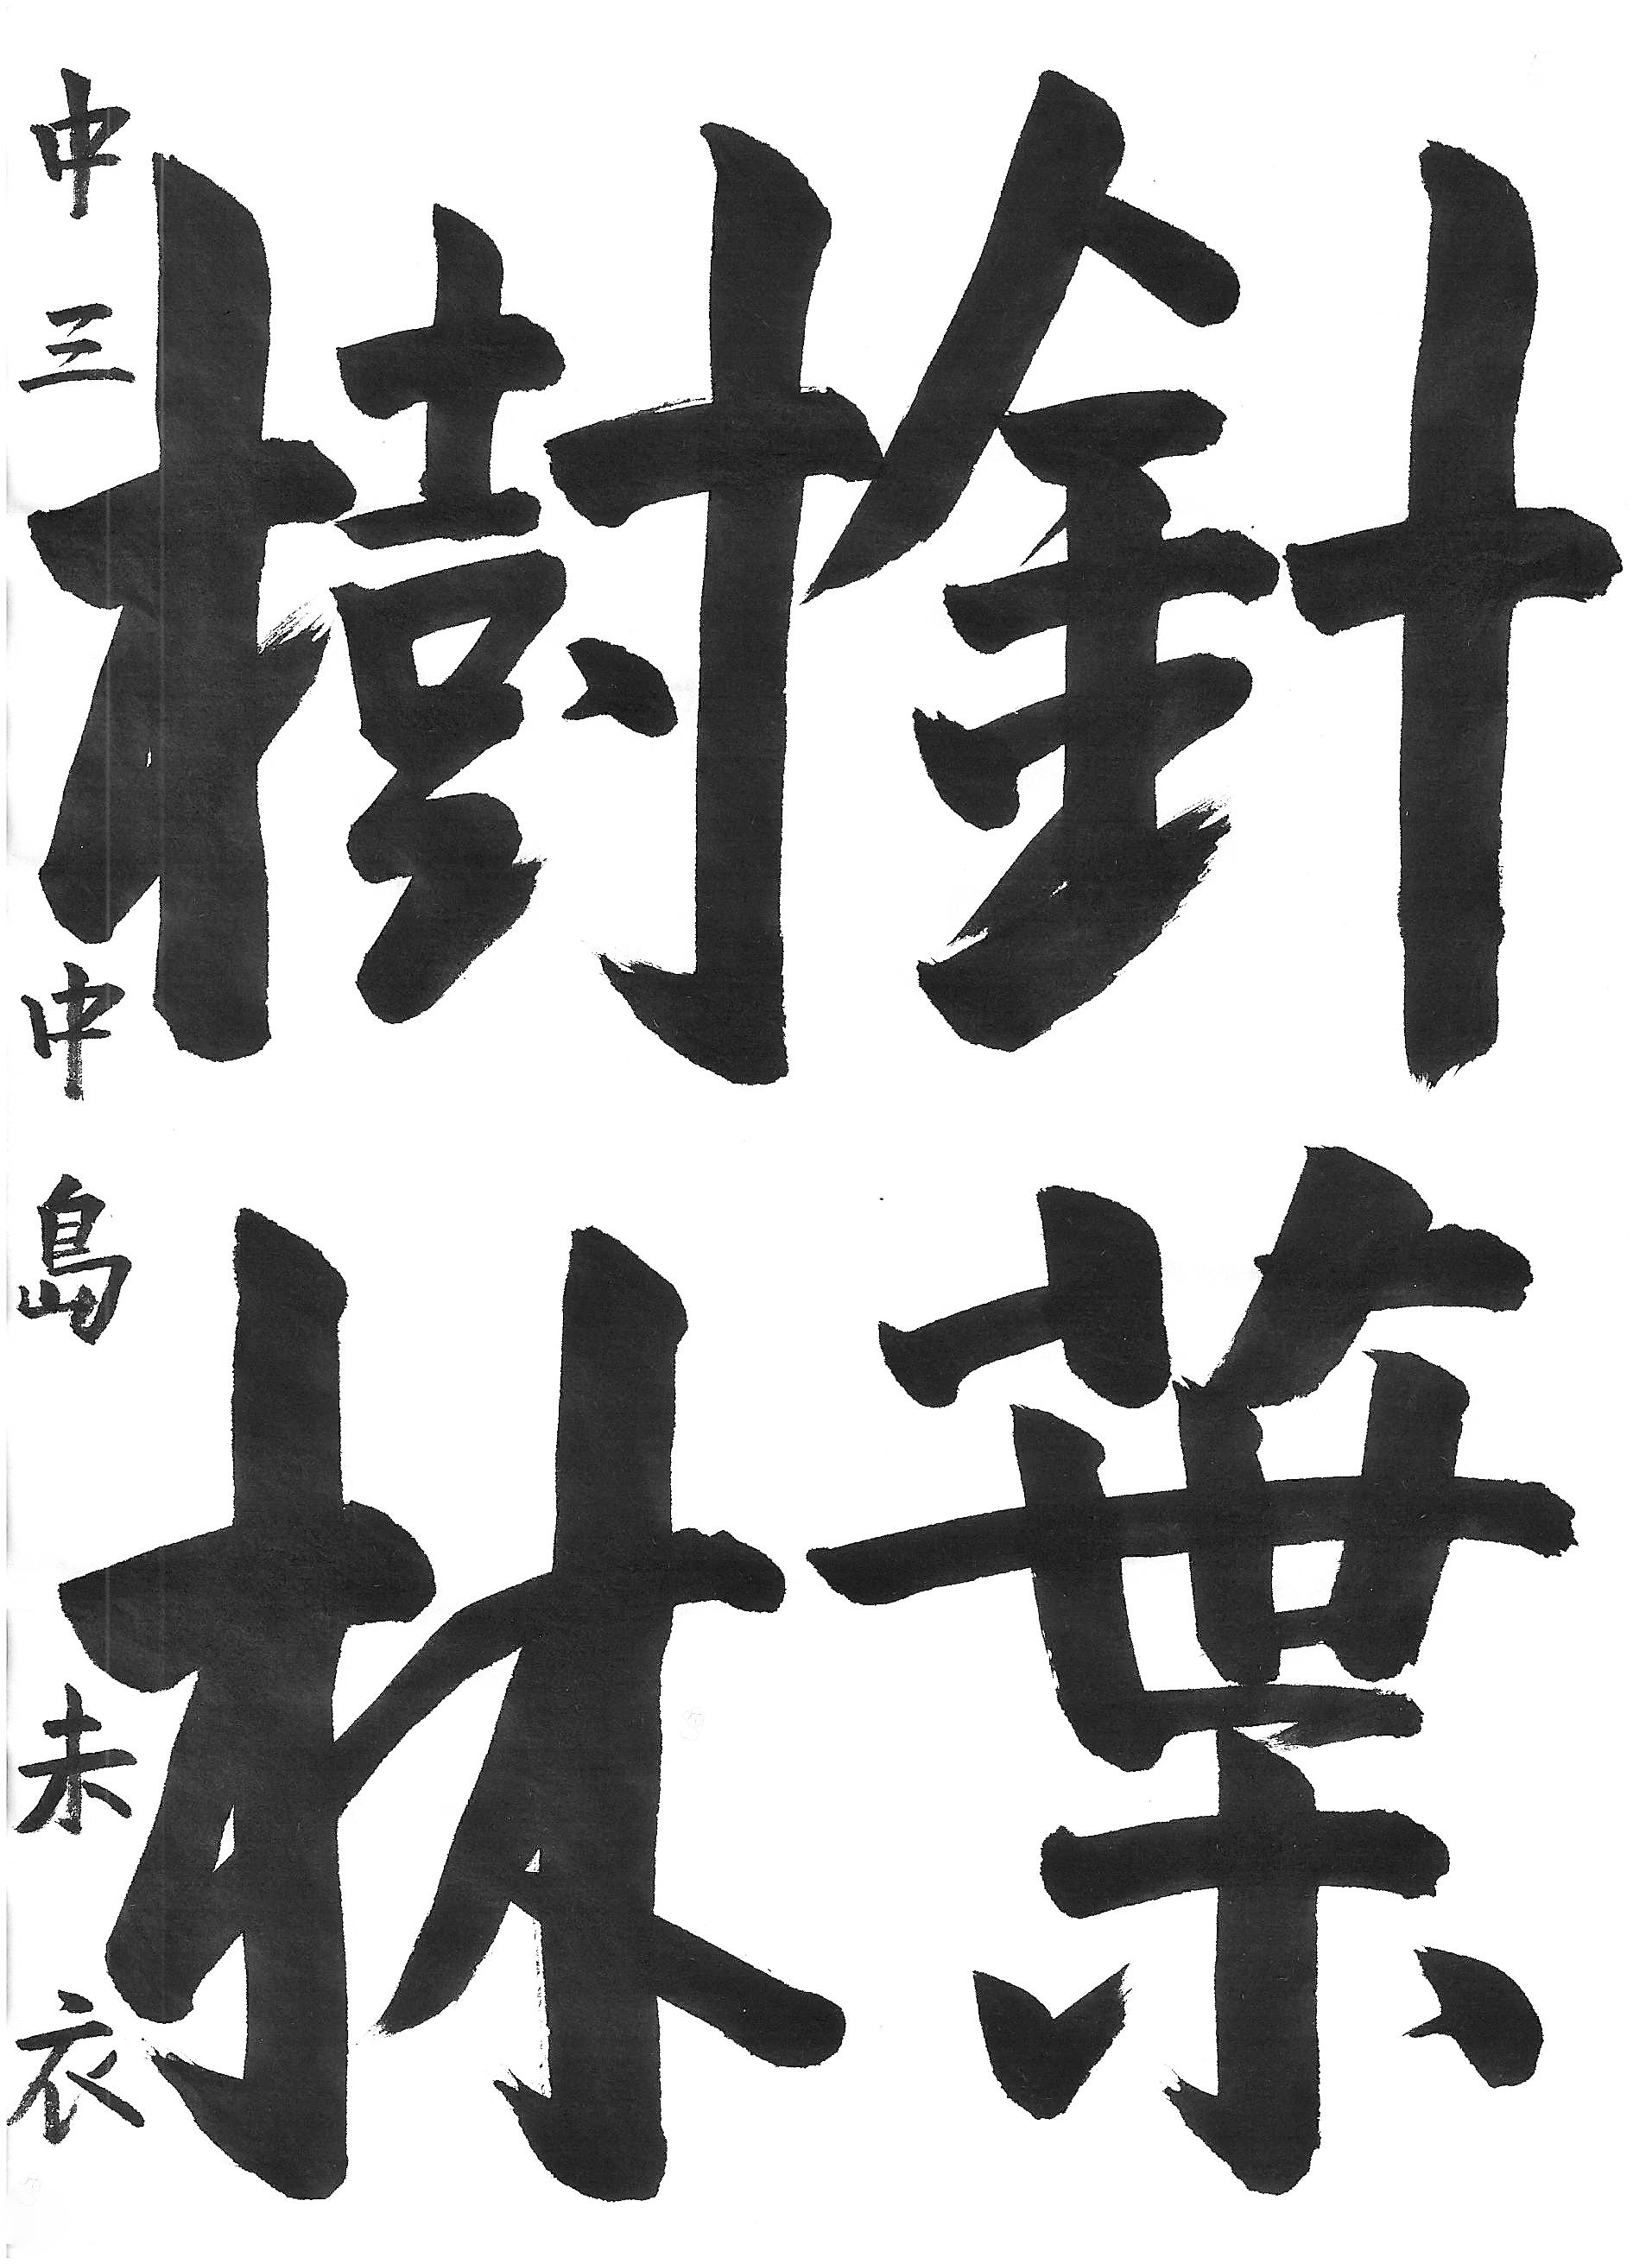 針葉
樹林
中三 中島未衣